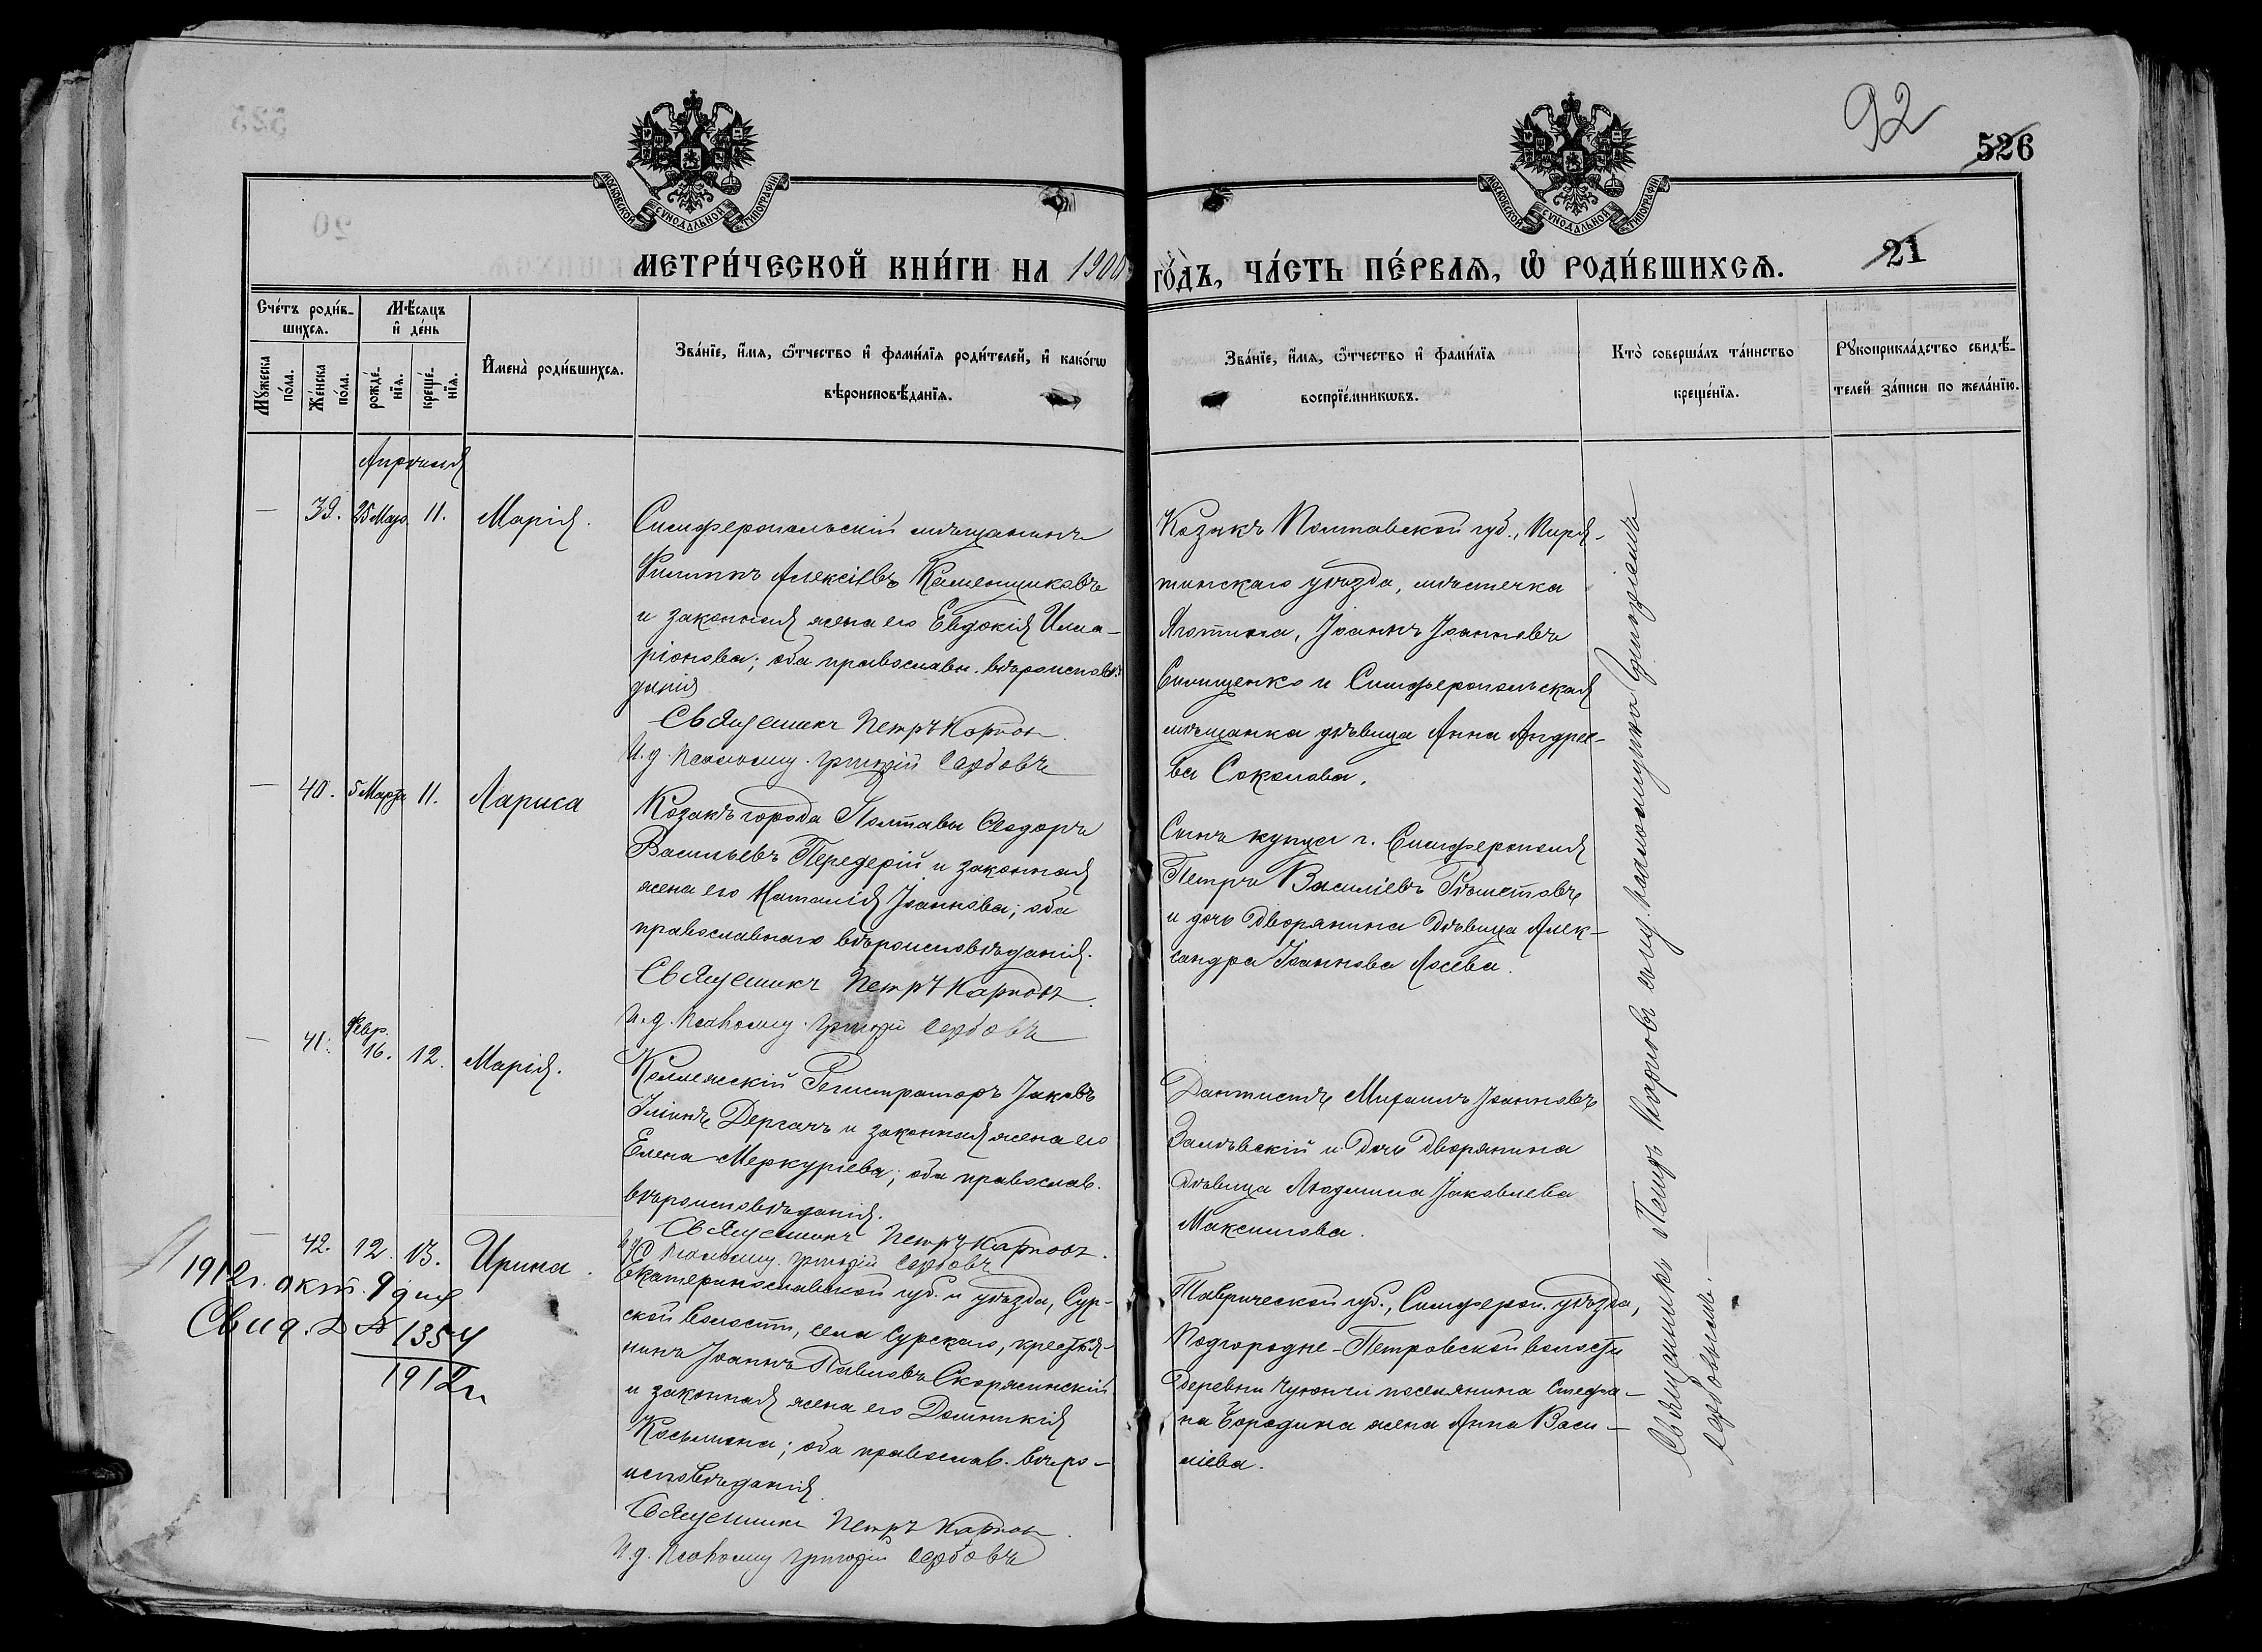 92
526
МОСКОВСКОЙ СѴНОДАЛЬНОЙ ТИПОГРАФІИ
МОСКОВСКОЙ СѴНОДАЛЬНОЙ ТИПОГРАФІИ
21
МЕТРИ́ЧЕСКОЙ КНИ́ГИ НА 1900 ГО́ДЪ, ЧА́СТЬ ПЕ́РВАЯ, Ѽ РОДИ́ВШИХСЯ.
Сче́тъ роди́в-
шихся.
Мꙋ́жеска по́ла.
Же́нска по́ла.
Мѣ́сяцъ
и҆ де́нь
рожде́-
нїя.
креще́-
нїя.
И҆мена̀ роди́вшихся.
Зва́нїе, и҆́мя, ѻ҆́тчество и҆ фами́лїя роди́телей, и҆ како́гѡ
вѣроисповѣ́данїя.
Зва́нїе, и҆́мя, ѻ҆́тчество и҆ фами́лїя
воспрїе́мникѡвъ.
Кто̀ соверша́лъ та́инство
креще́нїя.
Рꙋкоприкла́дство свидѣ́-
телей за́писи по жела́нїю.
Апрѣля
— 39. 25 Мар. 11. Марія.
Симферопольскій мѣщанинъ
Филиппъ Алексіевъ Каменщиковъ
и законная жена его Евдокія Илла-
ріонова; оба православн. вѣроисповѣ-
данія
Священникъ Петръ Карпов.
И. д. Псаломщ. Григорій Сербовъ
Козакъ Полтавской губ., Пиря-
тинскаго уѣзда, мѣстечка
Яготина, Іоаннъ Іоанновъ
Симпферопольская
мѣщанка дѣвица Анна Андрее-
ва Соколова.
— 40. 5 Марта 11. Лариса
Козакъ города Полтавы Ѳеодоръ
Васильевъ Передерій и законная
жена его Наталія Іоаннова; оба
православнаго вѣроисповѣданія.
Священникъ Петръ Карповъ.
И. д. Псаломщ. Григорій Сербовъ
Сынъ купца г. Симферополя
Петръ Василіевъ Рѣшетовъ
и дочь Дворянина Дѣвица Алек-
сандра Іоаннова Лосева.
— 41. Февр. 16. 12. Марія.
Коллежскій Регистраторъ Іаковъ
Иліинъ Дергачъ и законная жена его
Елена Меркуріева; оба православ.
вѣроисповѣданія.
Священникъ Петръ Карповъ.
и/д Псаломщ. Григорій Сербовъ
Дантистъ Михаилъ Іоанновъ
Залѣвскій и Дочь Дворянина
Дѣвица Людмила Іаковлева
Максимова.
— 42. 12. 13. Ирина.
1912 г. окт. 9 дня
Свид. № 1354
1912 г.
Екатеринославской губ. и уѣзда, Сур-
ской волости, села Сурскаго, крестья-
нинъ Іоаннъ Павловъ Скоржинскій
и законная жена его Домникія
Косьмина; оба православ. вѣро-
исповѣданія.
Священникъ Петръ Карповъ.
И. д. Псаломщ Григорій Сербовъ
Таврической губ., Симфероп. уѣзда,
Подгородне-Петровской волости
Деревни Чуюнчи поселянина Стефа-
на Бородина жена Анна Васи-
ліева.
Священникъ Петръ Карповъ съ и. д. псаломщика Григоріемъ
Сербовымъ.